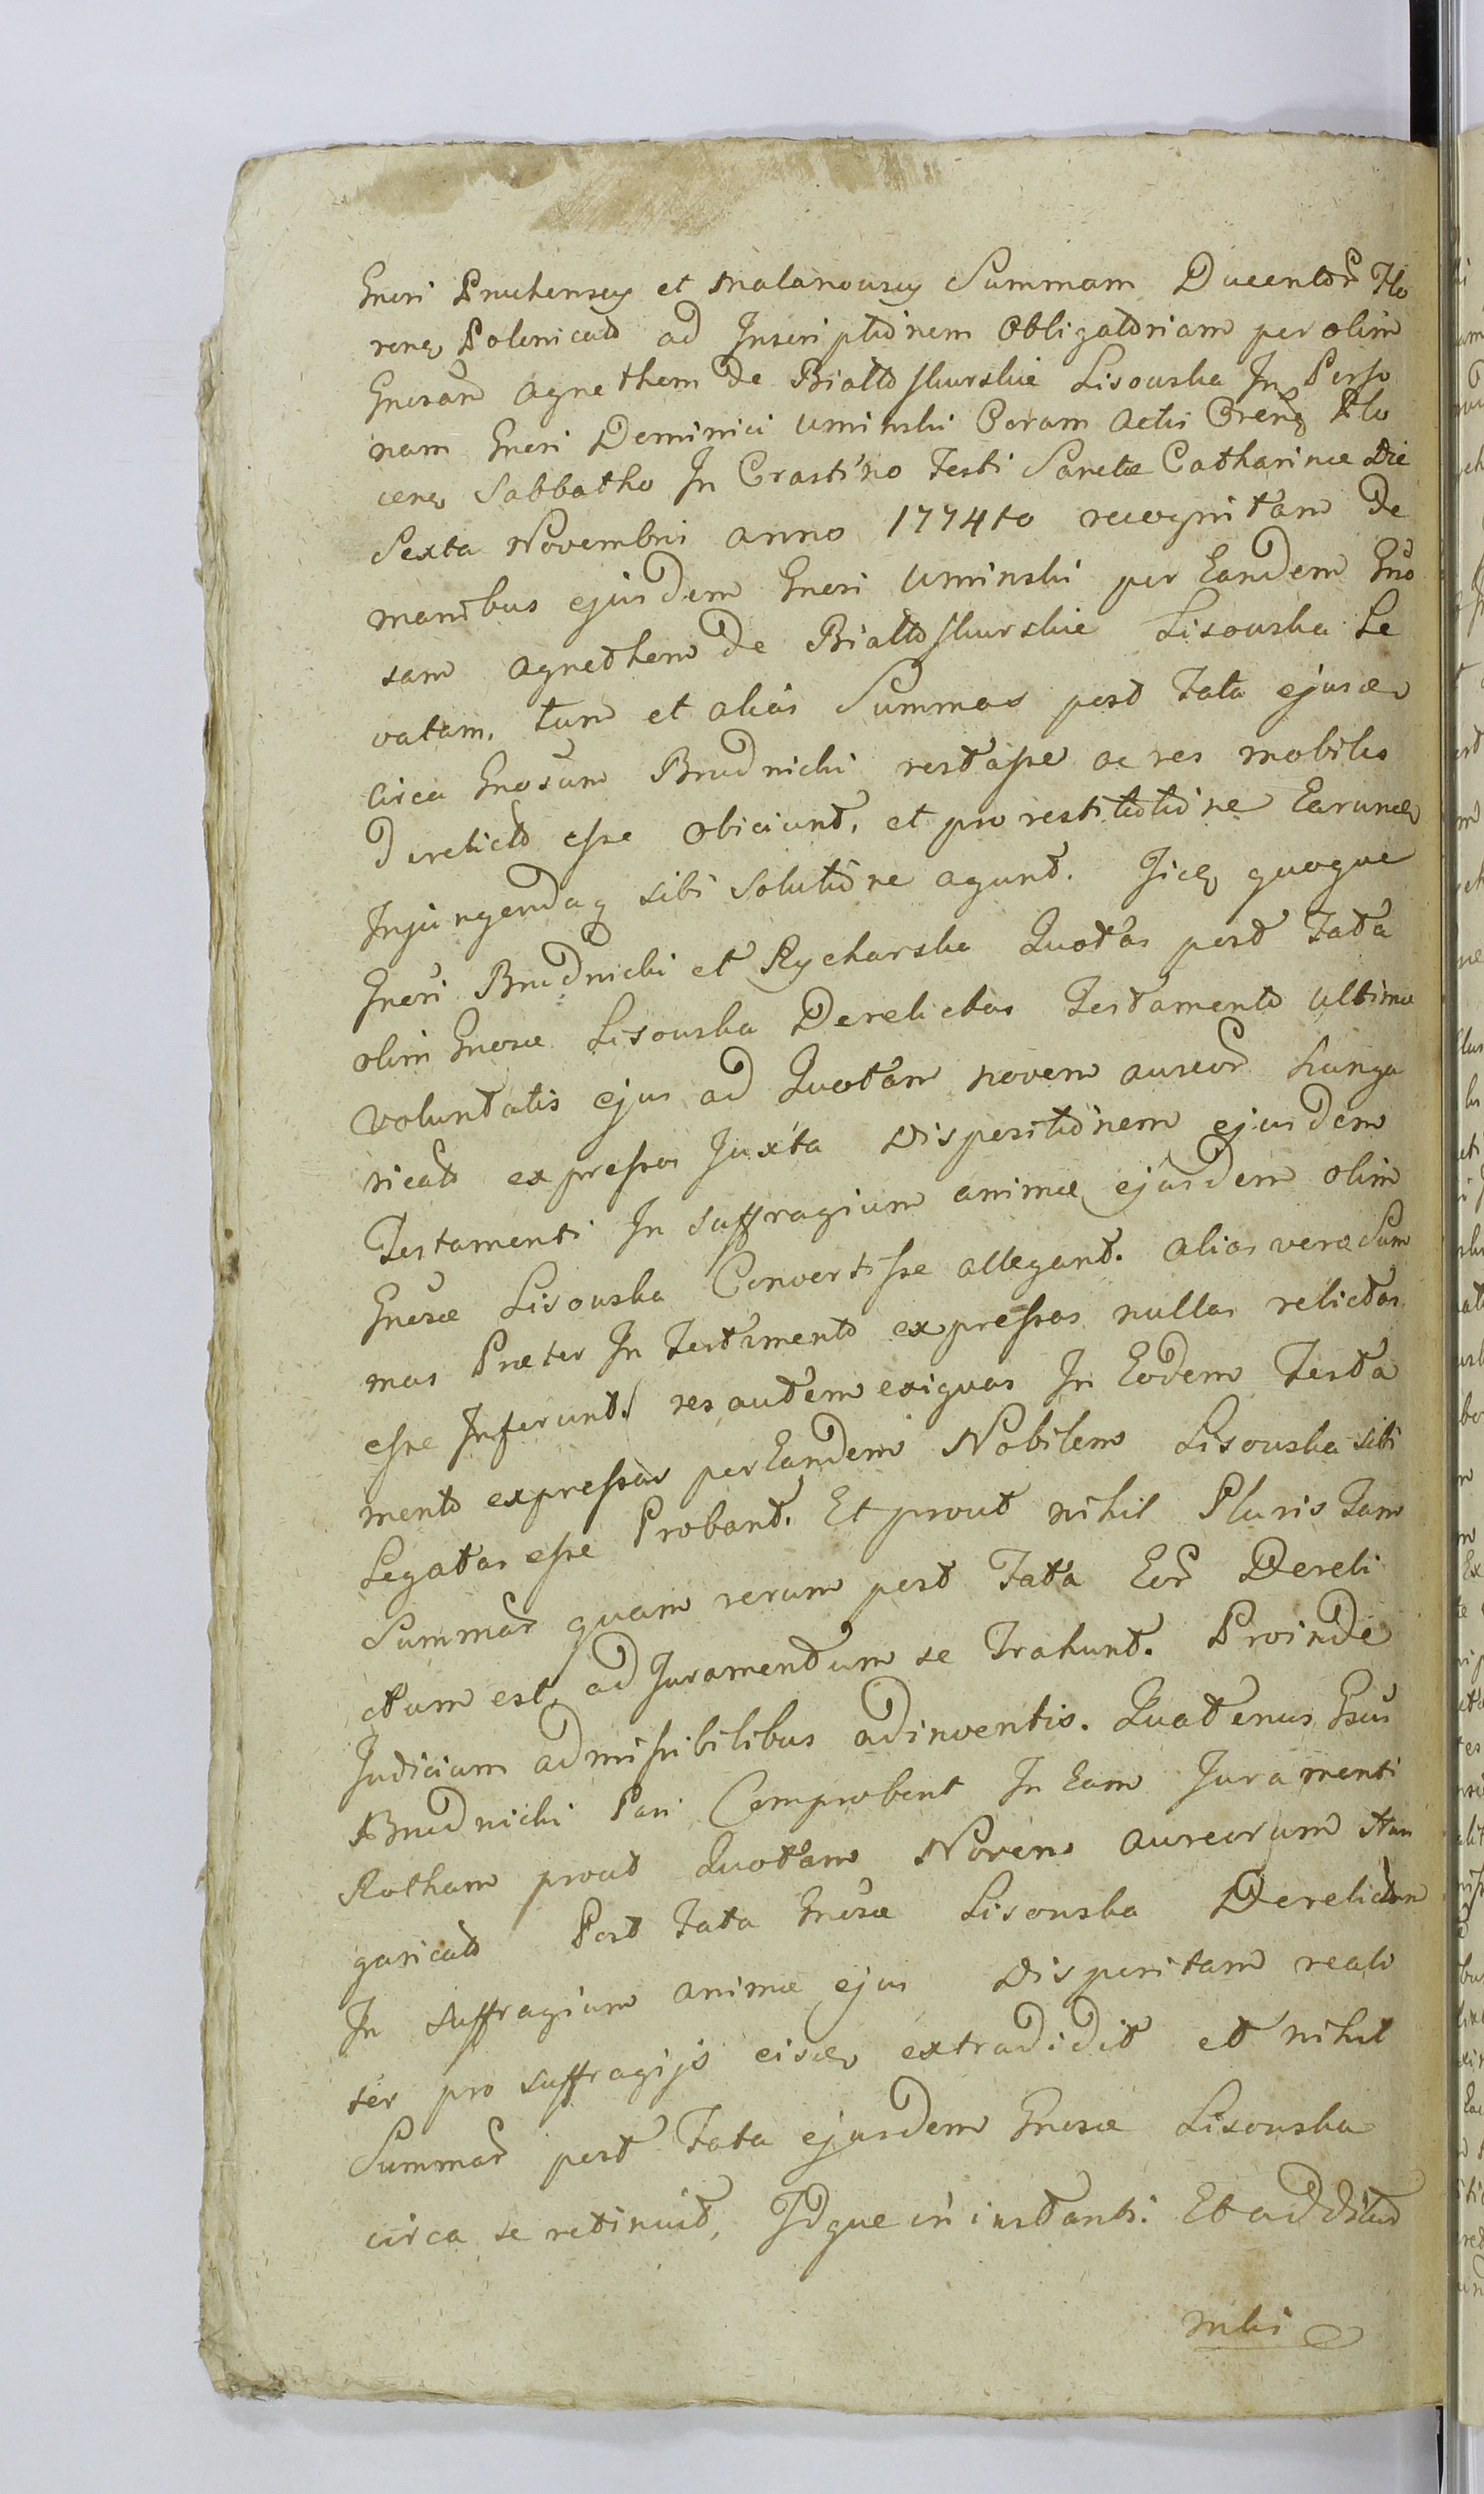 Gnesi Pruchenscy et Malanouscy Summam Ducentor Flo
reng Polonicat ad Inscriptionem Obligatoriam per olim
Gnosam Agnethem de Białłoskurskie Lisouska In Perso
nam Gnesi Dominici Uminski Coram Actis Cren Plo
cens Sabbatho In Crastino Festi Sanctæ Catharinæ Die
Sexta Novembris anno 1774to recognitam de
manibus ejusdem Gnesi Uminski per Eandem Gno
sam Agnethem de Białłoskurskie Lisouska Le
vatam, tum et alias Summas post Fata ejusd
circa Gnosum Brudnicki restasse ac res mobiles
derelict esse obiciunt, et pro restitutione Earund
Injungendaq sibi Solutione agunt. Iid quoque
Gnesi Brudnicki et Rycharska Quotas post Fata
olim Gnosæ Lisouska Derelictas Testamento Ultimæ
voluntatis ejus ad Quotam novem aureor Hunga
ricat expressas Juxta Dispositionem ejusdem
Testamenti In suffragium animæ ejusdem olim
Gnosæ Lisouska Convertisse allegant. alias vero Sum
mas Præter In Testamento expressas nullas relictas
esse Inferunt. res autem exiguas In Eodem Testa
mento expressas per Eandem Nobilem Lisouska sibi
Legatas esse Probant. Et prout nihil Pluris Tam
Summar quam rerum post Fata Eor Dereli
ctum est, ad Juramentum se Trahunt. Proinde
Judicium admissibilibus adinventis. Quatenus Gsus
Brudnicki Pari Comprobent In Eam Juramenti
Rotham prout Quotam Novem aureorum Hun
garicat Post Fata Gnosæ Lisouska Derelictam
In suffragium animæ ejus Dispositam reali
ter pro suffragijs eisd extradidit et nihil
Summar post Fata ejusdem Gnosæ Lisouska
circa se retinuit, Idque in instanti. Et addit